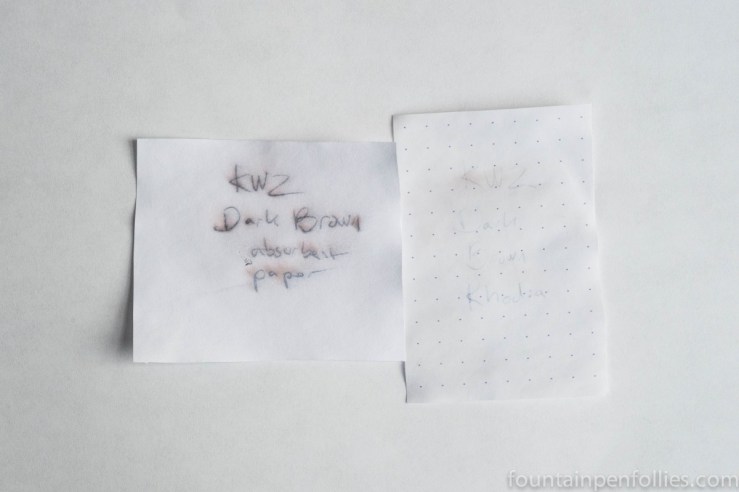 KWZ
Dark Brown
absorbent
paper
KWZ
Dark
Brown
Rhodia
fountainpenfollies.com